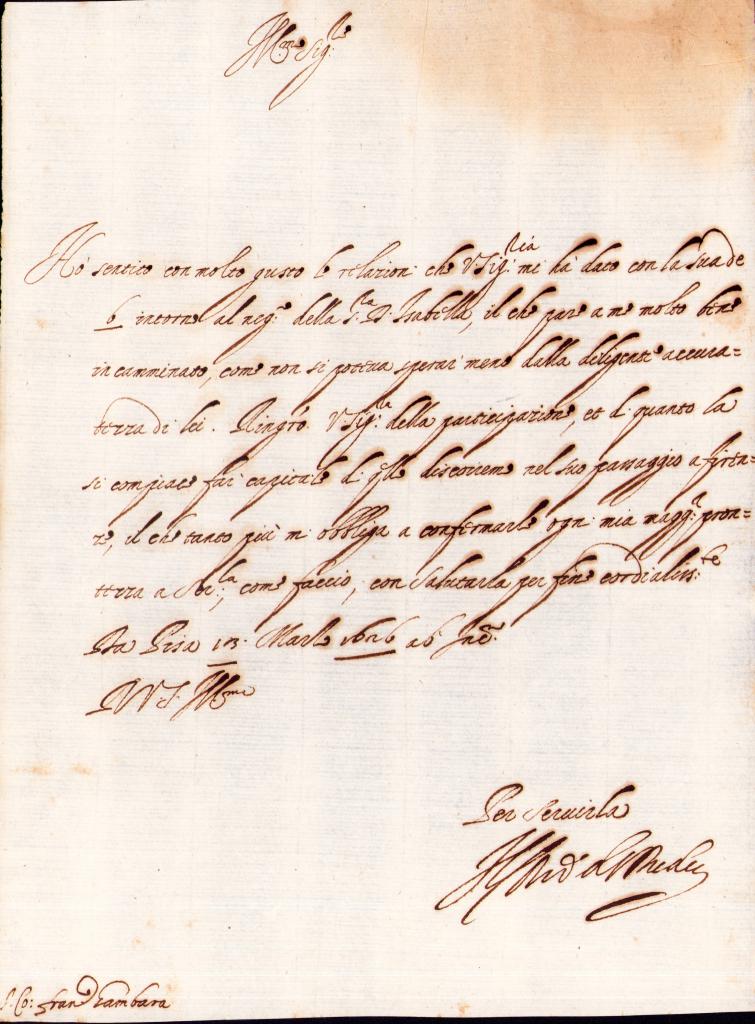 Ill.mo Sig.re
Hò sentito con molto gusto le relazioni che V Sig.ria mi hà dato con la sua de
6 intorno al neg.o della S.ra D. Isabella, il che pare a me molto bene
incamminato, come non si poteva sperar meno dalla diligente accura=
tezza di lei. Ringro V Sig.ria della participazione, et di quanto la
si compiace far capitale di qlle discorremo nel suo passaggio a firen=
ze, il che tanto più mi obbliga a confermarle ogni mia magg.r pron=
tezza a ser.la, come faccio, con salutarla per fine cordialiss.te
Da Pisa 13 Marzo 1626 ab Inc.ne
D V S. Ill.ma
Per servirla
de Medici
S. Co: Fran.o Gambara